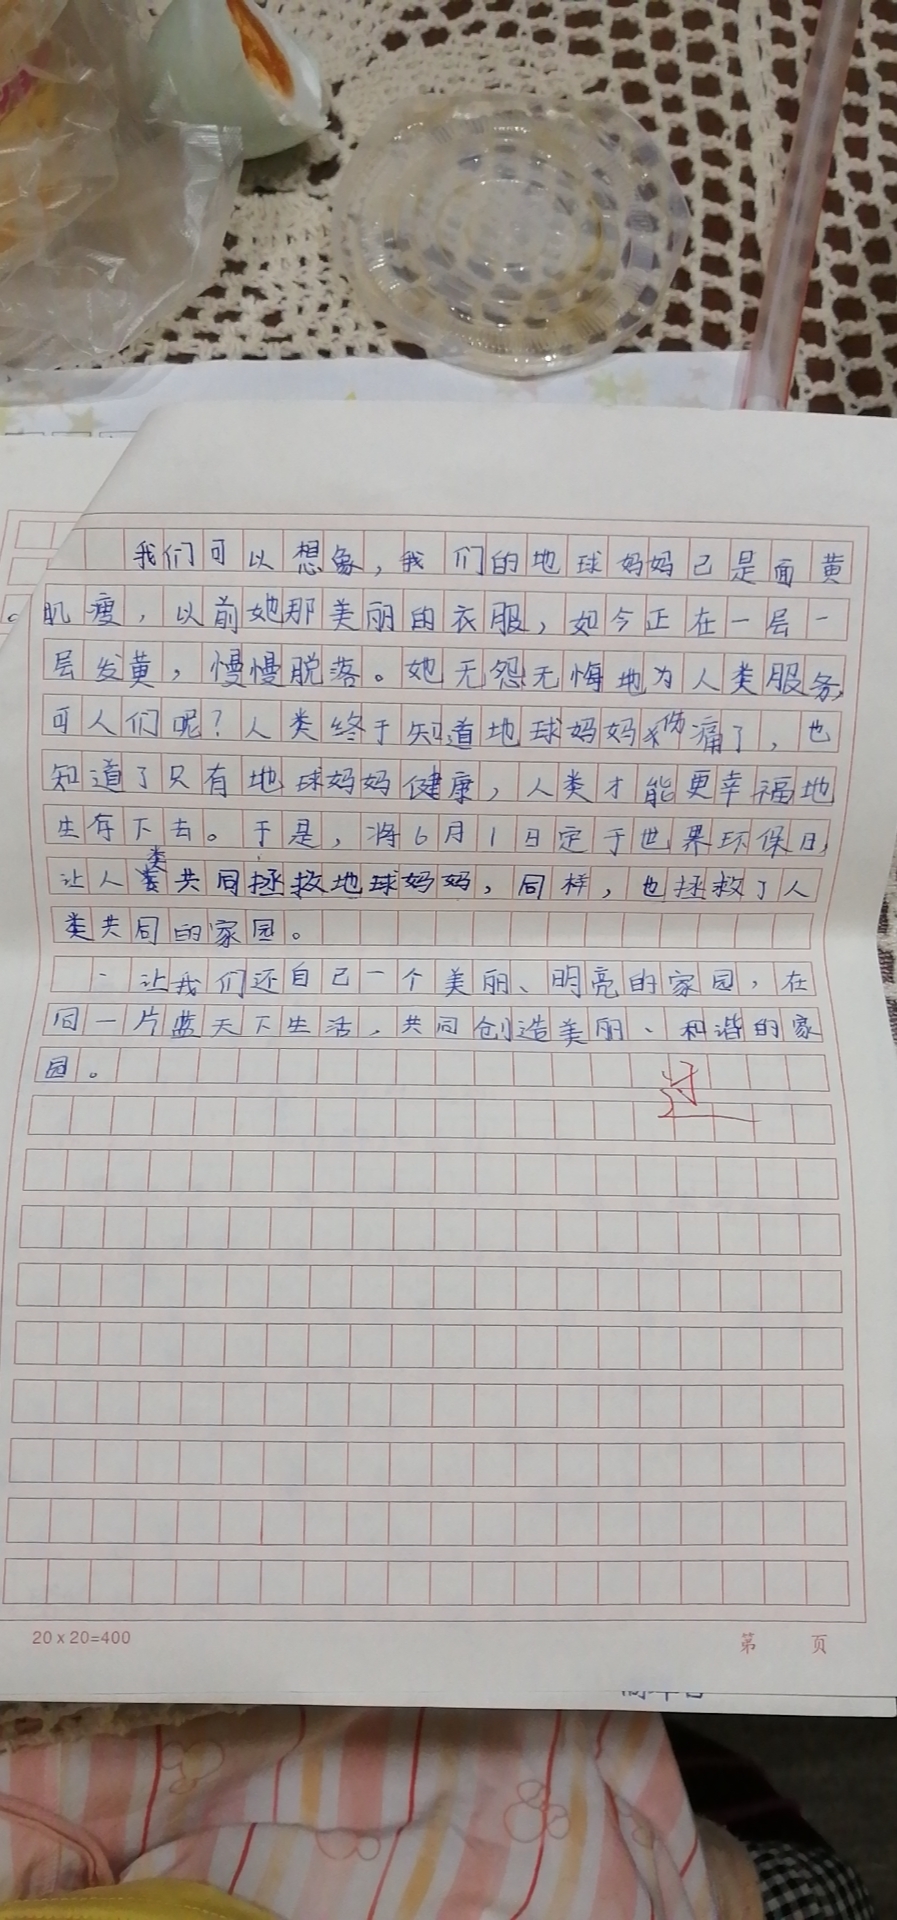 我们可以想象,我们的地球妈妈已是面黄
肌瘦,以前她那美丽的衣服,如今正在一层一
层发黄,慢慢脱落。她无怨无悔地为人类服务,
可人们呢?人类终于知道地球妈妈伤痛了,也
知道了只有地球妈妈健康,人类才能更幸福地
生存下去。于是,将6月1日定于世界环保日,
让人类共同拯救地球妈妈,同样,也拯救了人
类共同的家园。
让我们还自己一个美丽、明亮的家园,在
同一片蓝天下生活,共同创造美丽、和谐的家
园。
过
20x20=400
第 页